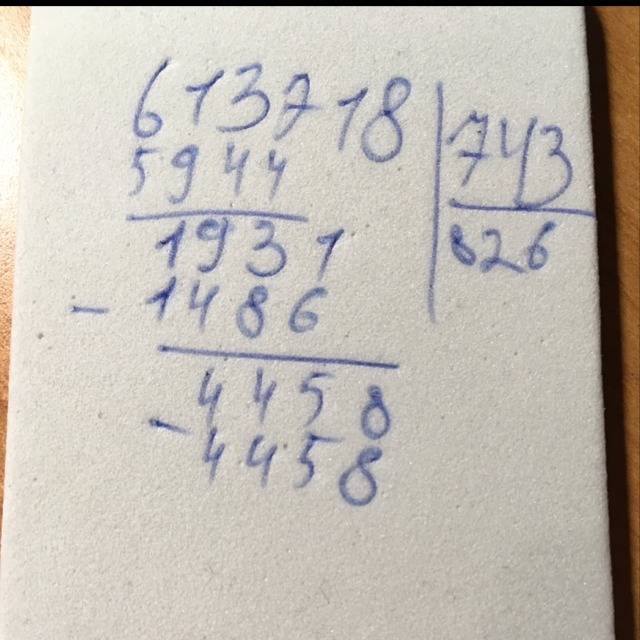 613718 743
5944 826
1931
- 1486
4458
- 4458